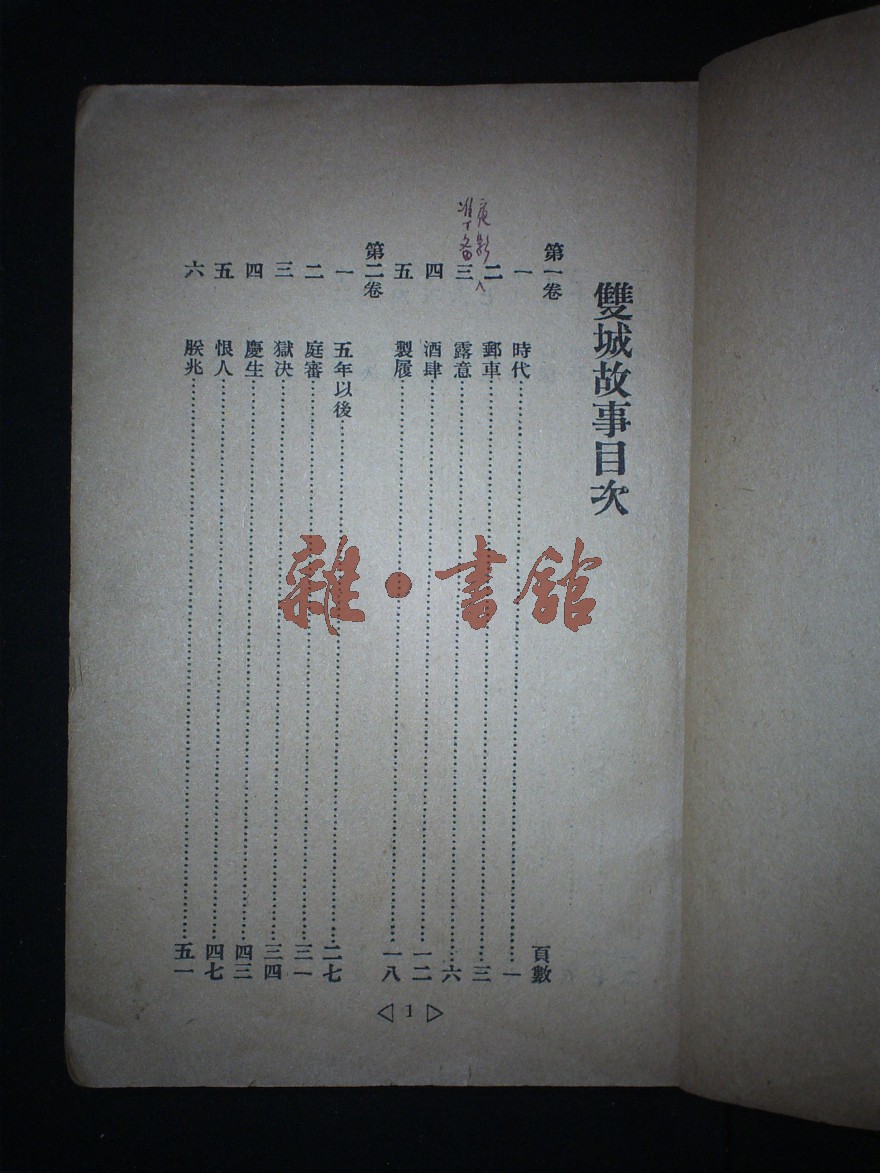 雙城故事目次
第一卷 頁數
一 時代 一
二 郵車 三
三 露意 六
四 酒肆 一二
五 製履 一八
第二卷
一 五年以後 二七
二 庭審 三一
三 獄決 三四
四 慶生 四三
五 恨人 四七
六 朕兆 五一
1
夜影
准备
雜·書館